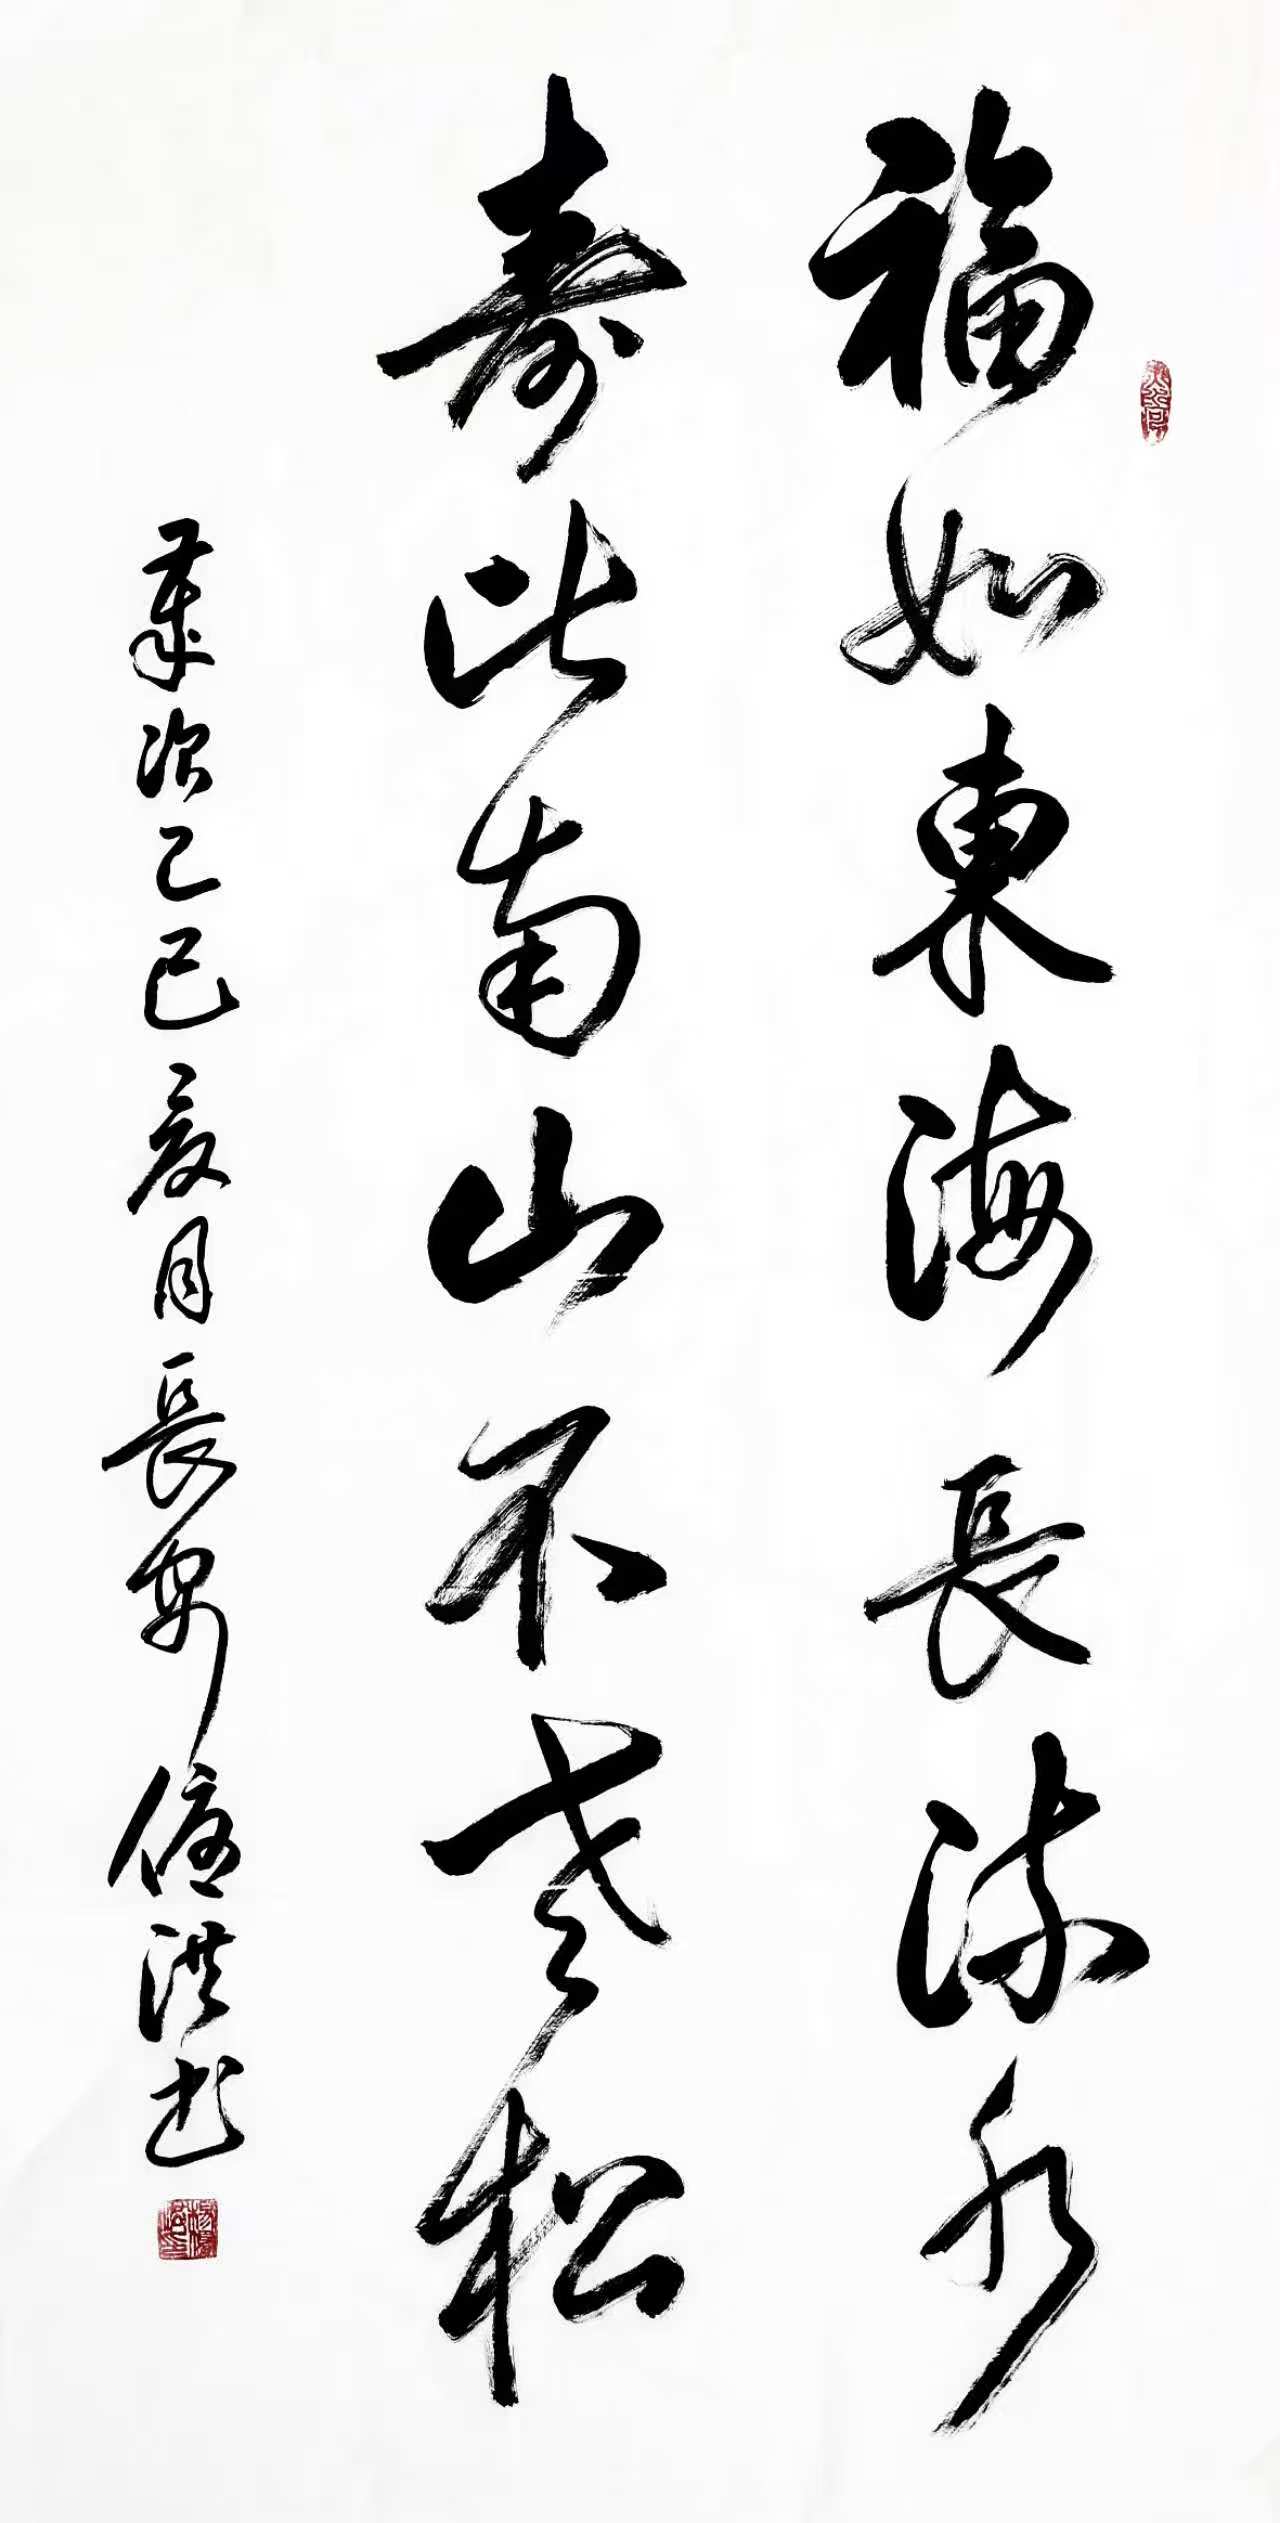 福如東海長流水
壽比南山不老松
歲次乙巳夏月長安德洪书